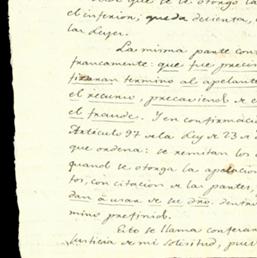 el inferior, queda desierta,
las Leyes.
La misma parte con
francamente: que fue precis
termino al apelante
el recurso, precaviendo
el fraude. Y en confirmacio
Articulo 97 de la Ley de 23 de
que ordena: se remitan los
quando se otorga la apelacio
tos, con citacion de las partes,
dan à usar de su dro. dentro
mino prefinido.
Esto se llama conferan
Justicia de mi Solicitud, pues